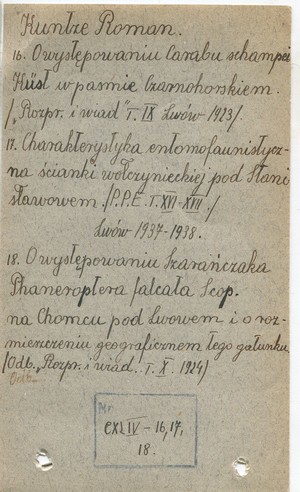 Kuntze Roman.
16. O występowaniu Carabu schampei
Küst w pasmie Czarnohorskiem.
/„Rozpr. i wiad" T. IX Lwów 1923/.
17. Charakterystyka entomofaunistycz-
na ścianki wołczynieckiej pod Stani
sławowem. /P.P.E. T. XVI-XVII./
Lwów 1937-1938.
18. O występowaniu Szarańczaka
Phaneroptera falcata Scop.
na Chomcu pod Lwowem i o roz-
mieszczeniu geograficznem tego gatunku.
/Odb. „Rozpr. i wiad. T. X. 1924/
Odb.
Nr.
CXLIV - 16, 17,
18.